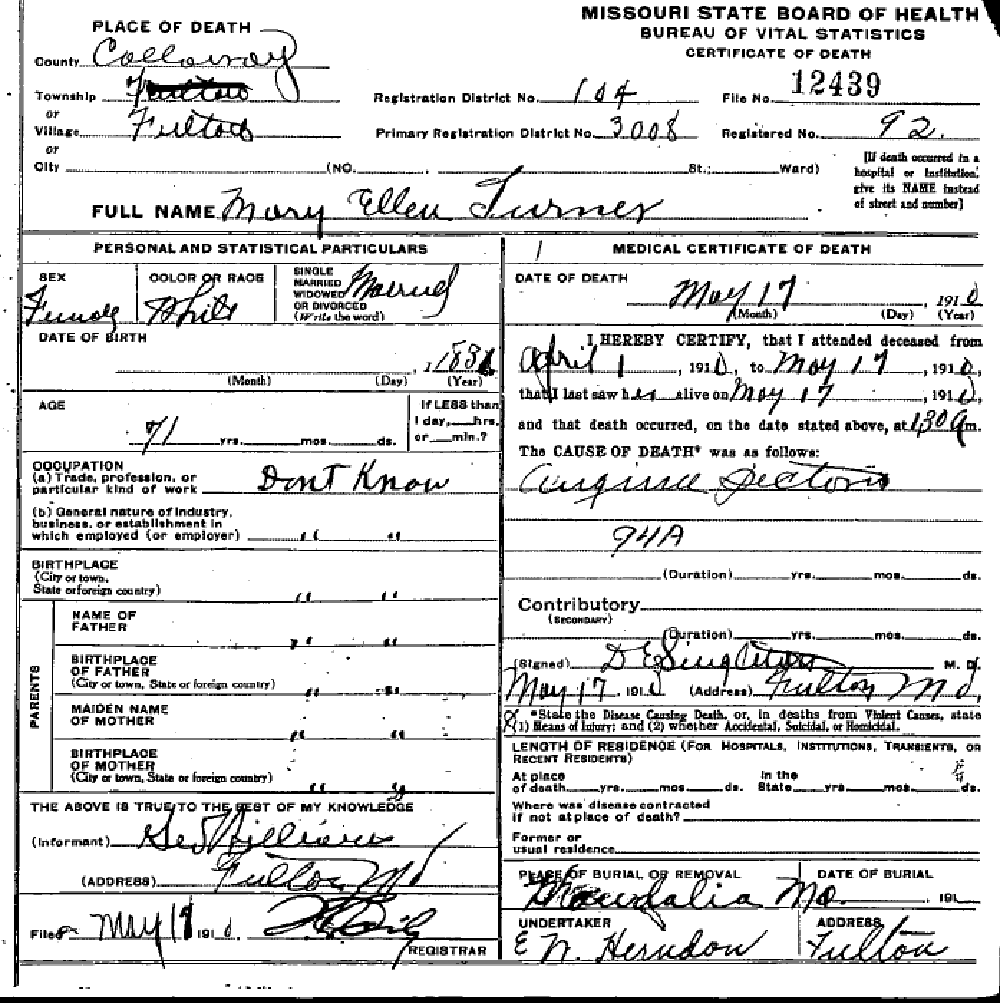 MISSOURI STATE BOARD OF HEALTH
BUREAU OF VITAL STATISTICS
CERTIFICATE OF DEATH
PLACE OF DEATH
County Callaway
Township Fulton
or
Village Fulton
or
City (NO. St.; Ward)
Registration District No. 104
File No. 12439
Primary Registration District No. 3008
Registered No. 92.
[If death occurred in a
hospital or institution,
give its NAME instead
of street and number]
FULL NAME Mary Ellen Turner
PERSONAL AND STATISTICAL PARTICULARS
SEX
Female
COLOR OR RACE
White
SINGLE
MARRIED
WIDOWED
OR DIVORCED
(Write the word)
Married
DATE OF BIRTH
, 1
(Month) (Day) (Year)
AGE
71 yrs. mos. ds.
If LESS than
1 day, hrs.
or min.?
OCCUPATION
(a) Trade, profession, or
particular kind of work Dont Know
(b) General nature of industry,
business, or establishment in
which employed (or employer) " "
BIRTHPLACE
(City or town,
State or foreign country) " "
PARENTS
NAME OF
FATHER " "
BIRTHPLACE
OF FATHER
(City or town, State or foreign country) " "
MAIDEN NAME
OF MOTHER " "
BIRTHPLACE
OF MOTHER
(City or town, State or foreign country) " "
THE ABOVE IS TRUE TO THE BEST OF MY KNOWLEDGE
(Informant)
(ADDRESS) Fulton Mo
Filed May 18 1910
REGISTRAR
MEDICAL CERTIFICATE OF DEATH
DATE OF DEATH
May 17 , 1910
(Month) (Day) (Year)
I HEREBY CERTIFY, that I attended deceased from
April 1, 1910, to May 17, 1910,
that I last saw her alive on May 17, 1910,
and that death occurred, on the date stated above, at 1,30 a m.
The CAUSE OF DEATH* was as follows:
Angina Pectoris
94A
(Duration) yrs. mos. ds.
Contributory
(SECONDARY)
(Duration) yrs. mos. ds.
(Signed) D E Singleton M. D.
May 17 1910 (Address) Fulton Mo,
*State the Disease Causing Death, or, in deaths from Violent Causes, state
(1) Means of Injury; and (2) whether Accidental, Suicidal, or Homicidal.
LENGTH OF RESIDENCE (FOR HOSPITALS, INSTITUTIONS, TRANSIENTS, OR
RECENT RESIDENTS)
At place
of death yrs. mos. ds.
In the
State yrs. mos. ds.
Where was disease contracted
if not at place of death?
Former or
usual residence
PLACE OF BURIAL OR REMOVAL
Vandalia Mo.
DATE OF BURIAL
191
UNDERTAKER
E N. Herndon
ADDRESS
Fulton